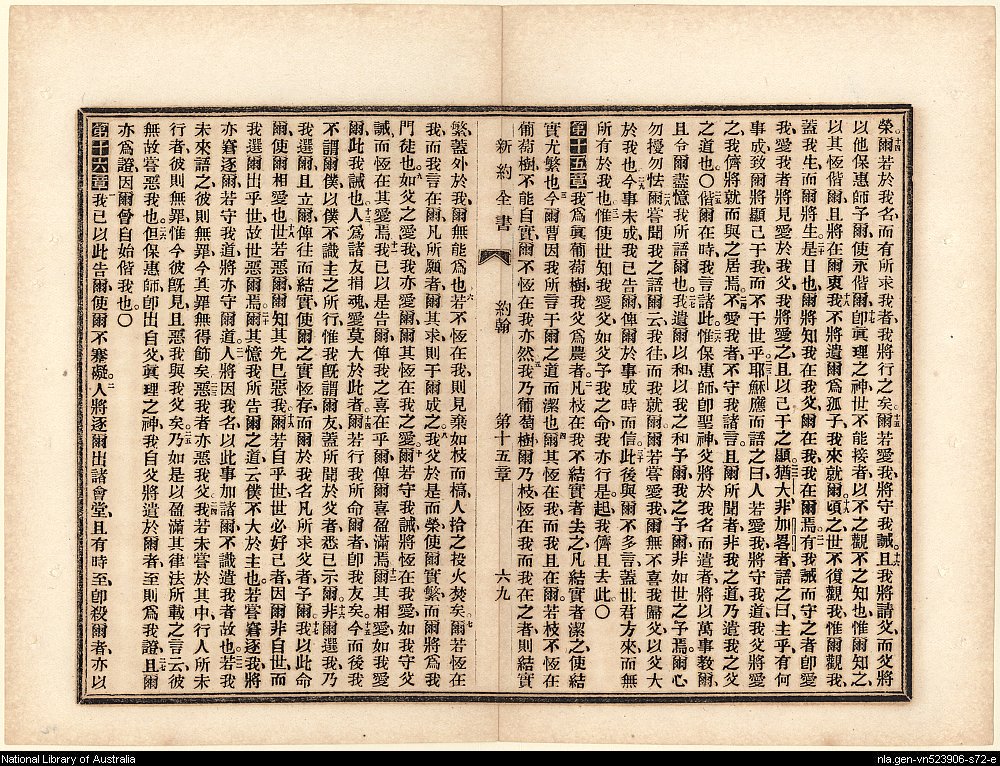 榮爾若於我名而有所求我者我將行之矣爾若愛我將守我誡且我將請父而父將
以他保惠師予爾使永偕爾卽眞理之神世不能接者以不之觀不之知也惟爾知之
以其恆偕爾且將在爾衷我不將遺爾爲孤子我來就爾頃之世不復觀我惟爾觀我
蓋我生而爾將生是日也爾將知我在我父爾在我我在爾焉有我誡而守之者卽
愛我者愛我者將見愛於我父我將愛之且以己于之顯猶大非加畧者語之曰主乎有何
事成致爾將顯己于我而不于世乎耶穌應而語之曰人若愛我將守我道我父將愛
之我儕將就而與之居焉不愛我者不守我諸言且爾所聞者非我之道乃遣我之父
之道也〇偕爾在時我言諸此惟保惠師卽聖神父將於我名而遣者將以萬事教爾
且令爾盡憶我所語爾也我遺爾以和以我之和予爾我之予爾非如世之予焉爾心
勿擾勿怯爾嘗聞我之語爾云我往而我就爾爾若嘗愛我爾無不喜我歸父以父大
於我也今事未成我已告爾俾爾於事成時而信此後與爾不多言蓋世君方來而無
所有於我也惟使世知我愛父如父予我之命我亦行是起我儕且去此〇
第十五章我爲眞葡萄樹我父爲農者凡枝在我不結實者去之凡結實者潔之使結
實尤繁也今爾曹因我所言于爾之道而潔也爾其恆在我而我且在爾若枝不恆在
葡萄樹不能自實爾不恆在我亦然我乃葡萄樹爾乃枝恆在我而我在之者則結實
新約全書
約翰
第十五章
六九
繁蓋外於我爾無能爲也若不恆在我則見棄如枝而槁人拾之投火焚矣爾若恆在
我而我言在爾凡所願者爾其求則于爾成之我父於是而榮使爾實繁而爾將爲我
門徒也如父之愛我我亦愛爾爾其恆在我之愛爾若守我誡將恆在我愛如我守父
誡而恆在其愛焉我已以是告爾俾我之喜在乎爾俾爾喜盈滿焉爾其相愛如我愛
爾此我誡也人爲諸友捐魂愛莫大於此者爾若行我所命爾者卽我友矣今而後我
不謂爾僕以僕不識主之所行惟我旣謂爾友蓋所聞於父者悉已示爾非爾選我乃
我選爾且立爾俾往而結實使爾之實恆存而爾於我名凡所求父者予爾我以此命
爾使爾相愛也世若惡爾爾知其先已惡我爾若自乎世世必好己者因爾非自世而
我選爾出乎世故世惡爾焉爾其憶我所告爾之道云僕不大於主也若嘗窘逐我將
亦窘逐爾若守我道將亦守爾道人將因我名以此事加諸爾不識遣我者故也若我
未來語之彼則無罪今其罪無得飾矣惡我者亦惡我父我若未嘗於其中行人所未
行者彼則無罪惟今彼旣見且惡我與我父矣乃如是以盈滿其律法所載之言云彼
無故嘗惡我也但保惠師卽出自父眞理之神我自父將遣於爾者至則爲我證且爾
亦爲證因爾曾自始偕我也〇
第十六章我已以此告爾使爾不蹇礙人將逐爾出諸會堂且有時至卽殺爾者亦以
National Library of Australia
nla.gen-vn523906-s72-e